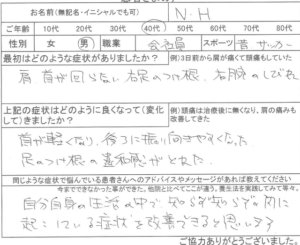 お名前(無記名・イニシャルでも可) N.H
ご年齢 10代 20代 30代 40代 50代 60代 70代
性別 女 男 職業 会社員 スポーツ 昔 サッカー
最初はどのような症状がありましたか? 例)3日前から肩が痛くて頭痛もしていた
肩首が回らない 右足のつけ根、右腕のしびれ
上記の症状はどのように良くなって(変化して)きましたか? 例)頭痛は治療後に無くなり、肩の痛みも改善できた
首が軽くなり、後ろに振り向きやすくなった
足のつけ根の違和感がとれた
同じような症状で悩んでいる患者さんへのアドバイスやメッセージがあれば教えてください
今までできなかった事ができた、他院と比べてここが違う、養生法を実践してみて等々。
自分自身の生活の中で知らず知らずの間に
起こしている症状を改善できると思います
ご協力ありがとうございました。